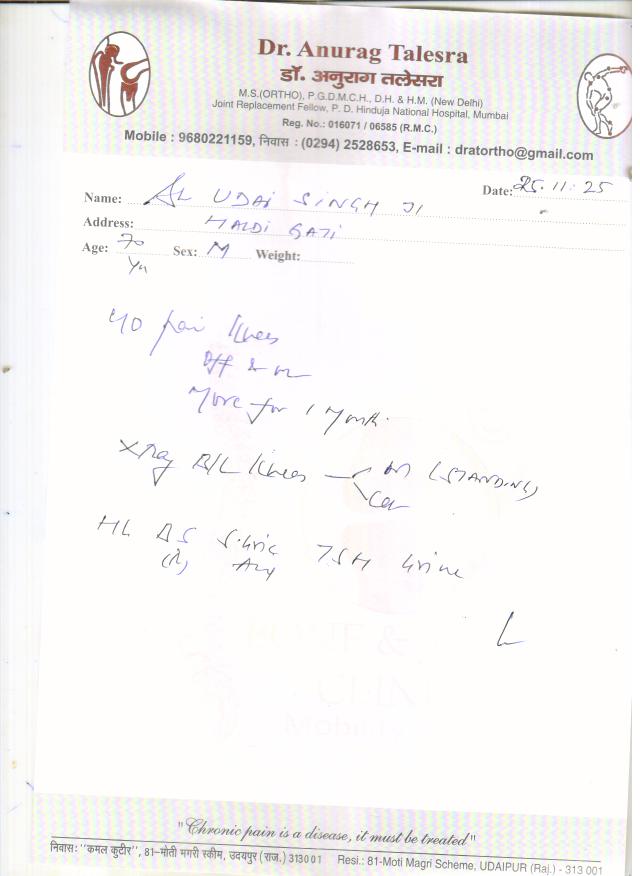 Dr. Anurag Talesra
डॉ. अनुराग तलेसरा
M.S.(ORTHO), P.G.D.M.C.H., D.H. & H.M. (New Delhi)
Joint Replacement Fellow, P. D. Hinduja National Hospital, Mumbai
Reg. No.: 016071 / 06585 (R.M.C.)
Mobile : 9680221159, निवास : (0294) 2528653, E-mail : dratortho@gmail.com
Date: 25.11.25
Name: UDAI SINGH JI
Address: HALDI GATI
Age: 70 Sex: M Weight:
Yrs
pain knees
off & on
More for 1 Month.
Xray B/L knees (STANDING)
S.Uric TSH Urine
(R) Acid
"Chronic pain is a disease, it must be treated"
निवास: "कमल कुटीर", 81-मोती मगरी स्कीम, उदयपुर (राज.) 313001 Resi.: 81-Moti Magri Scheme, UDAIPUR (Raj.) - 313 001